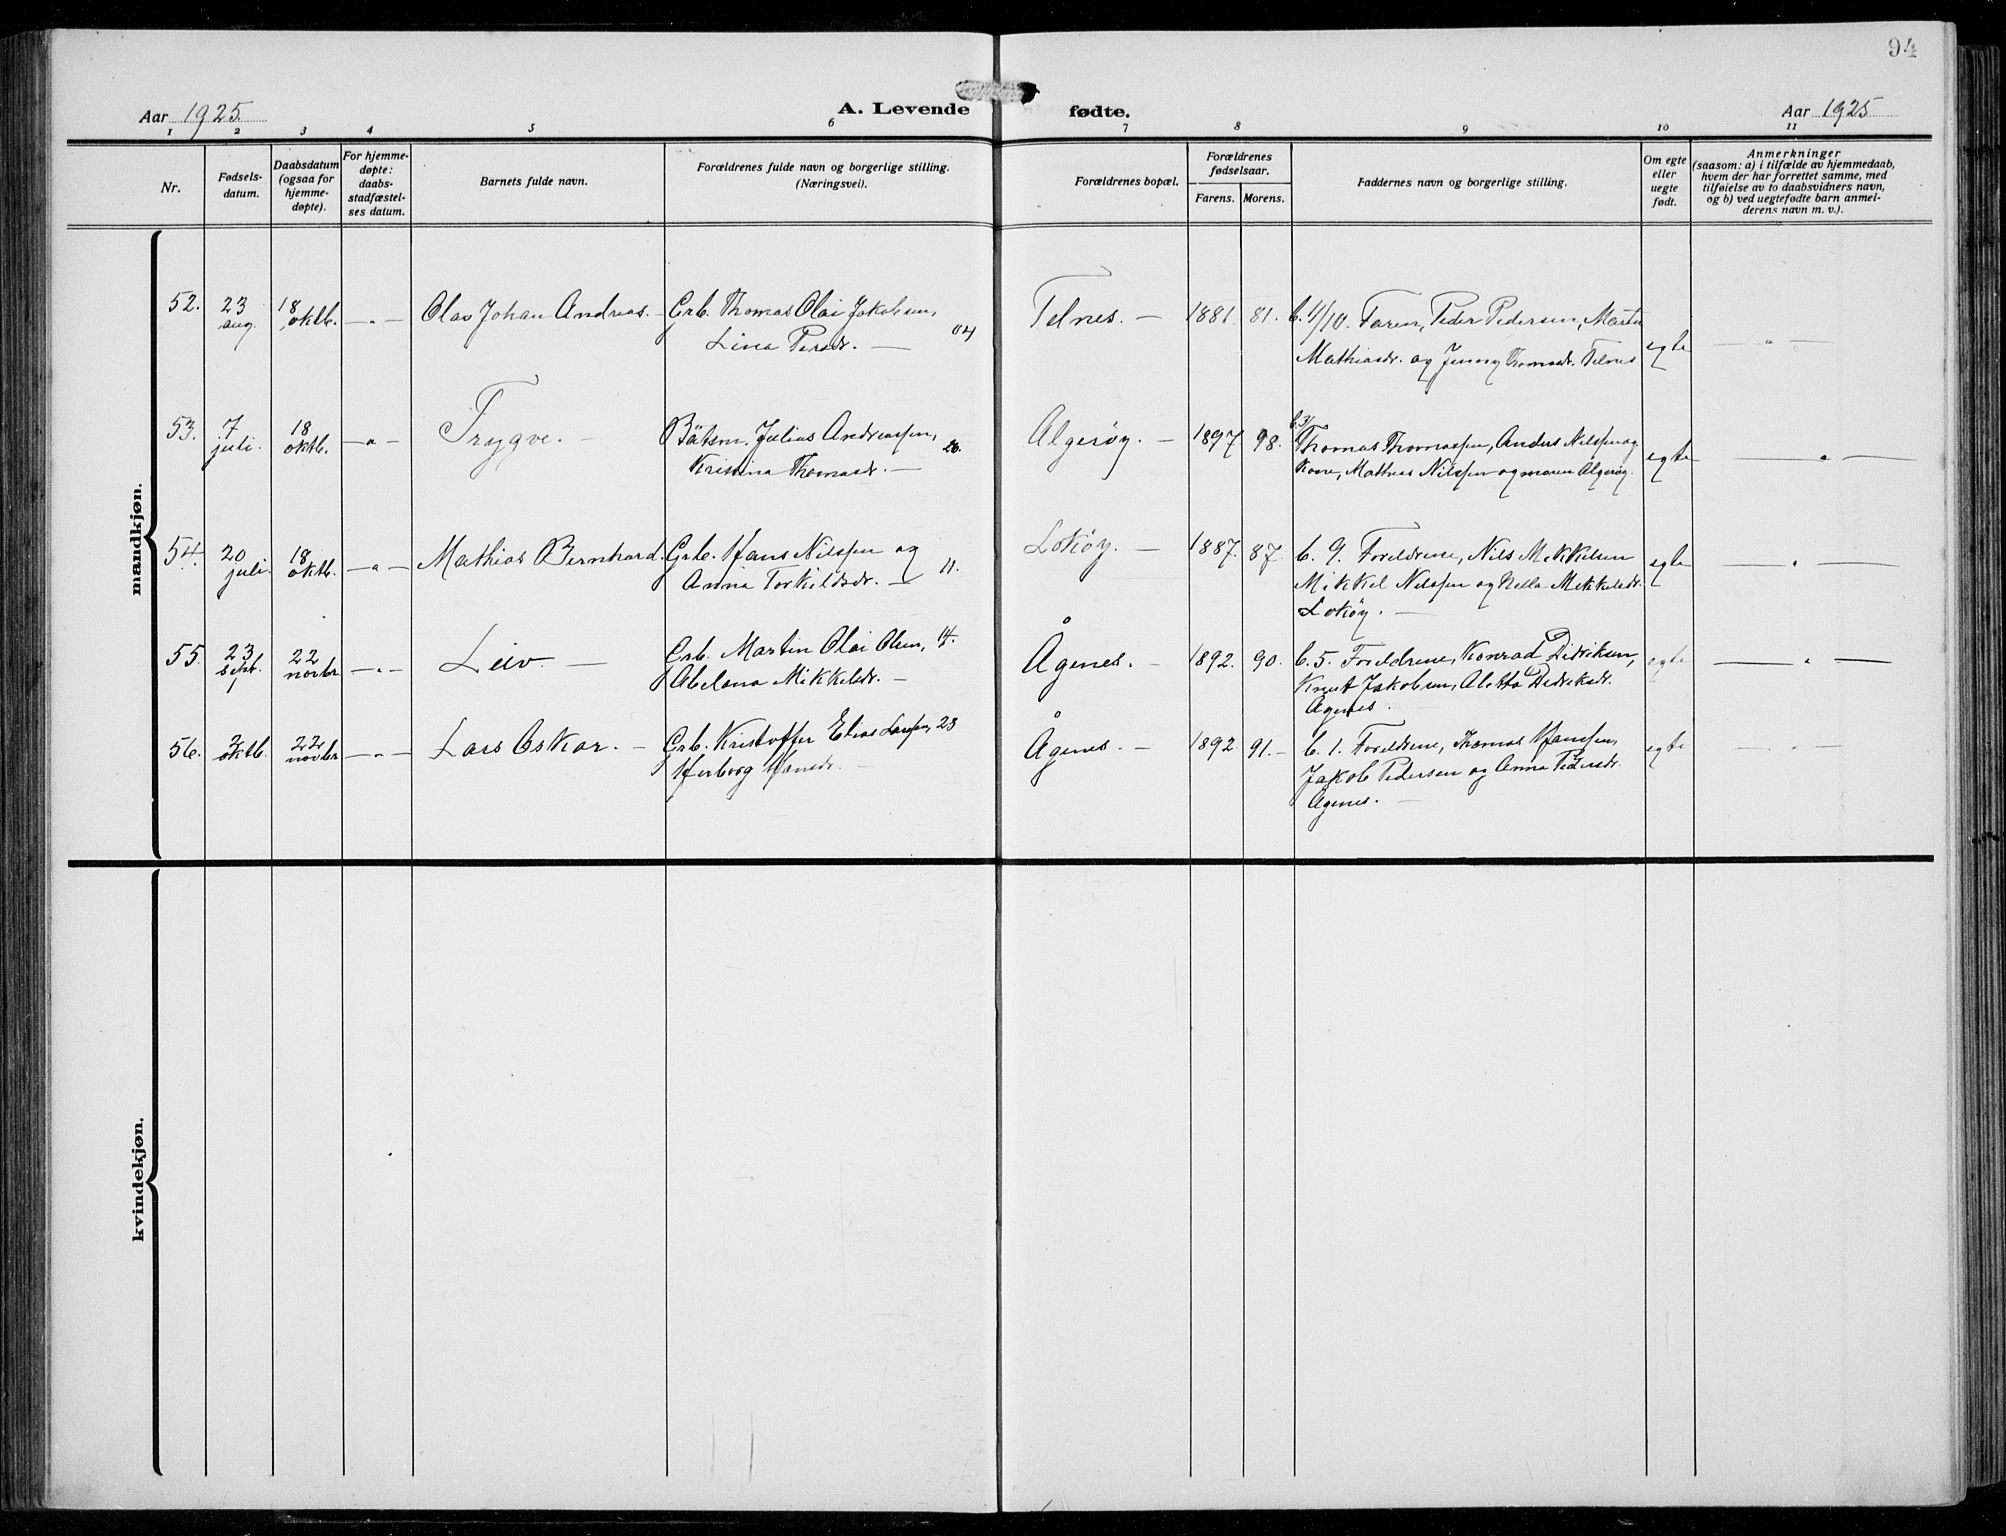 94
Aar 1925
A. Levende fødte.
Aar 1925
1 2 3 4 5 6 7 8 9 10 11
Nr.
Fødsels-
datum.
Daabsdatum
(ogsaa for
hjemme-
døpte).
For hjemme-
døpte:
daabs-
stadfæstel-
ses datum.
Barnets fulde navn.
Forældrenes fulde navn og borgerlige stilling.
(Næringsvei).
Forældrenes bopæl.
Forældrenes
fødselsaar.
Farens. Morens.
Faddernes navn og borgerlige stilling.
Om egte
eller
uegte
født.
Anmerkninger
(saasom: a) i tilfælde av hjemmedaab,
hvem der har forrettet samme, med
tilføielse av to daabsvidners navn,
og b) ved uegtefødte barn anmel-
derens navn m. v.).
mandkjøn.
52.
23
aug.
18
oktb.
— " —
Olav Johan Andreas. —
Grb. Thomas Olai Jakobsen,
Lina Persdr. —
04
Telnes. —
1881. 81.
b. 11/10. Faren, Peder Pedersen, Marta
Mathiasdr. og Jenny Thomasdr. Telnes
egte
— " —
53.
7
juli.
18
oktb.
— " —
Trygve. —
Båtsm. Julius Andreassen,
Kristina Thomasdr. —
20.
Algerøy. —
1897 98.
Thomas Thomassen, Anders Nilssen og
Kone, Mathias Nilssen og maren Algerøy.
egte
— " —
54.
20
juli
18
oktb.
— " —
Mathias Bernhard.
Grb. Hans Nilssen og
Anna Torkildsdr. —
11.
Lokøy. —
1887. 87.
b. 9. Foreldrene, Nils Mikkelsen
Mikkel Nilssen og Nella Mikkelsdr.
Lokøy. —
egte
— " —
55.
23
septb.
22
novbr
— " —
Leiv —
Grb. Martin Olai Olsen, 14.
Abelona Mikkelsdr. —
Ågenes. —
1892. 90.
b. 5. Foreldrene, Konrad Didriksen,
Knut Jakobsen, Aletta Didriksdr.
Ågenes. —
egte
— " —
56.
2
oktb.
22
novbr
— " —
Lars Oskar. —
Grb. Kristoffer Elias Larssen, 23
Herborg Hansdr. —
Ågenes. —
1892 91. —
b. 1. Foreldrene, Thomas Hanssen,
Jakob Pedersen og Anna Pedersdr.
Ågenes. —
egte
— " —
kvindekjøn.